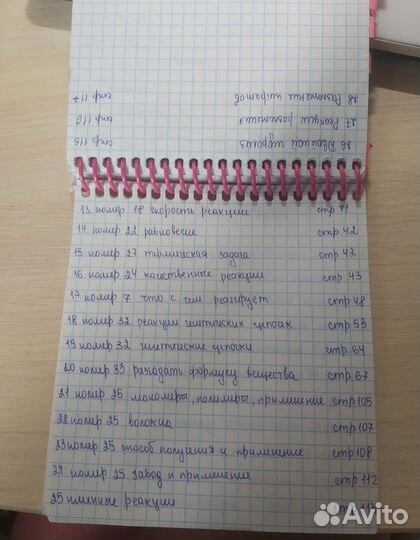 28 Разложение нитратов стр 117
27 Реакции разложения стр 116
26 Двойной гидролиз стр 115
13. номер 18 скорости реакции стр 41
14. номер 22 равновесие стр 42
15 номер 27 термическая задача стр 42
16 номер 24 качественные реакции стр 43
17. номер 7 что с чем реагирует стр 48
18. номер 32 реакции генетических цепочек стр 53
19 номер 32 генетические цепочки стр 64
20 номер 33 разгадать формулу вещества стр 67
21 номер 25 мономеры, полимеры, применение стр 105
22 номер 25 волокна стр 107
23 номер 25 способ получения и применение стр 108
24 номер 25 завод и применение стр 112
25 именные реакции стр
Avito